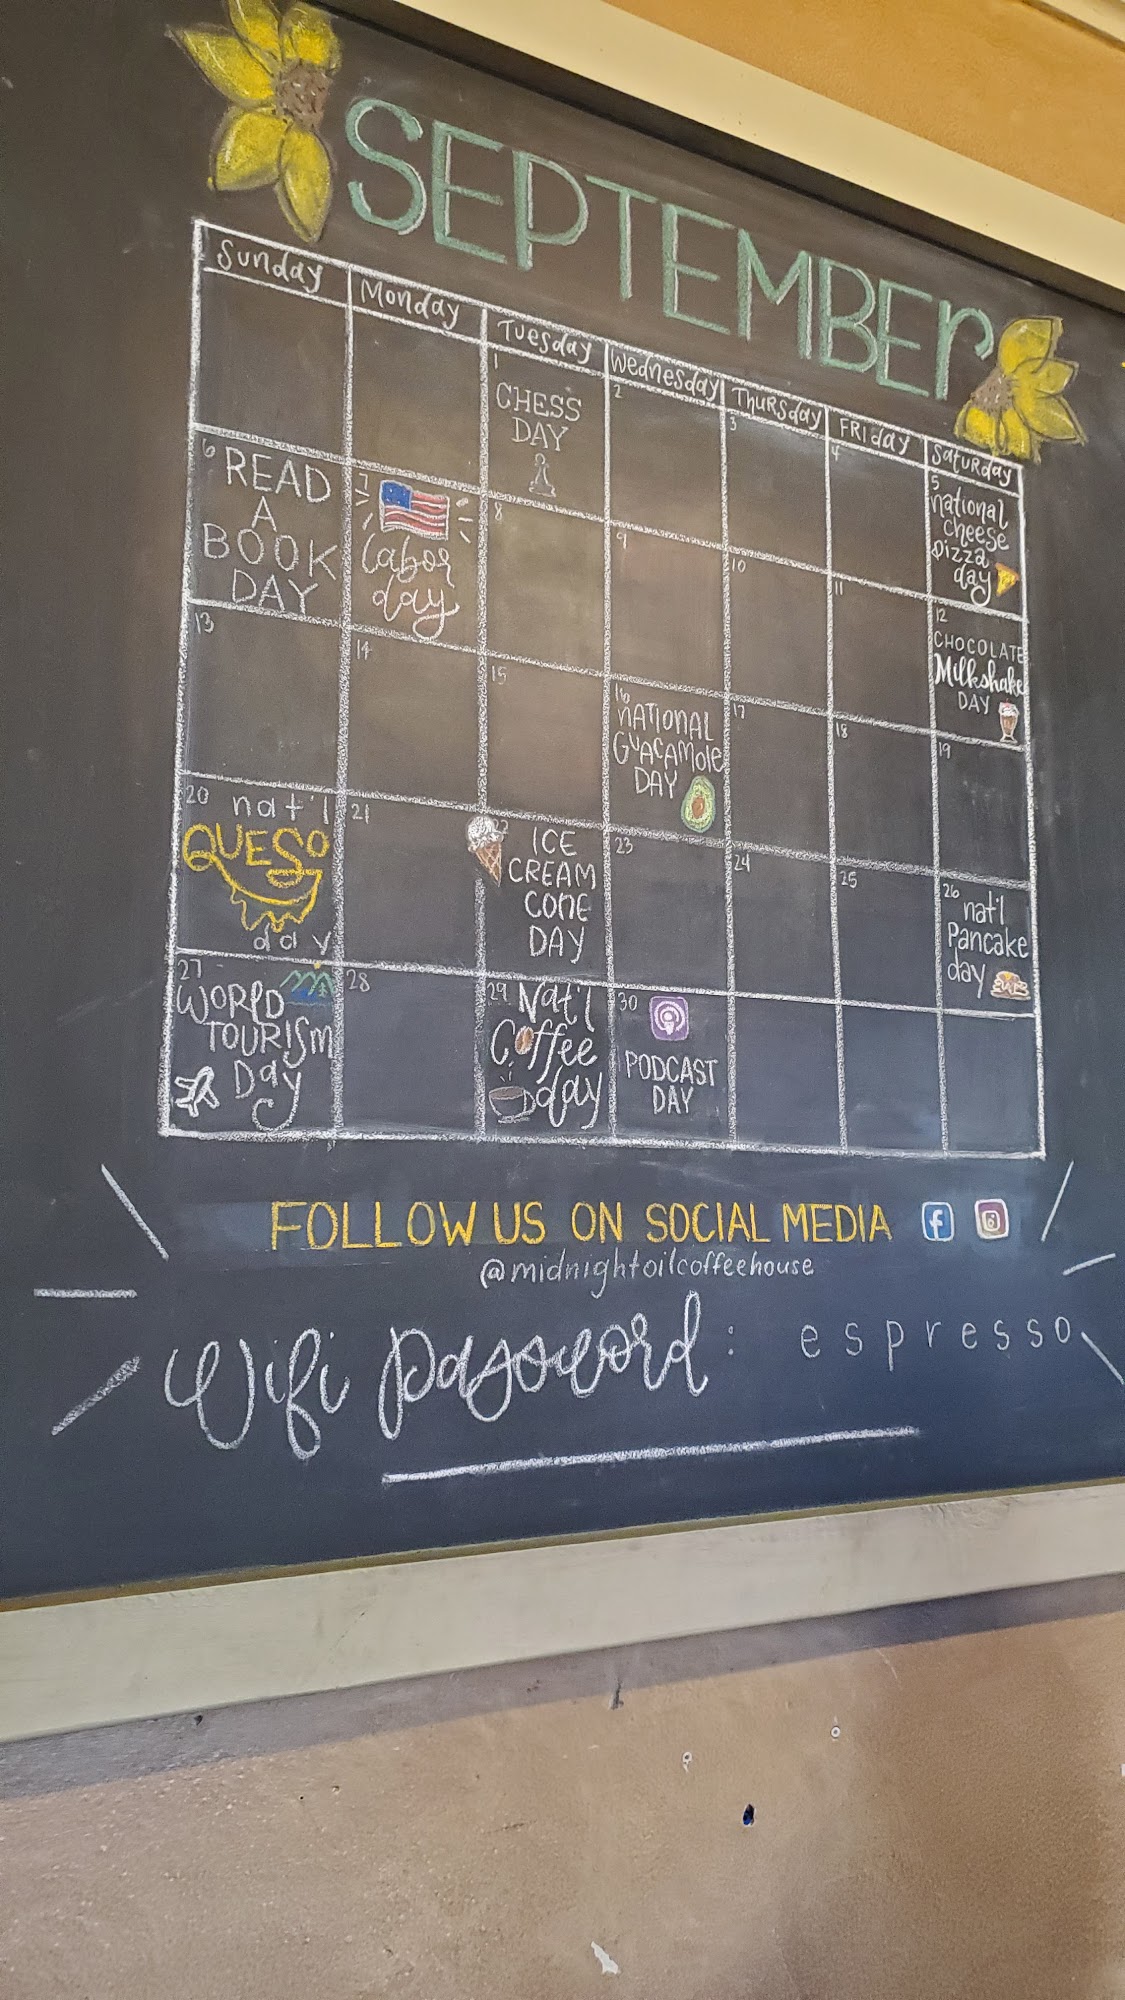 SEPTEMBER
Sunday Monday Tuesday Wednesday Thursday Friday Saturday
1
CHESS
DAY
2
3
4
5
national
cheese
pizza
day
6
READ
A
BOOK
DAY
7
Labor
day
8
9
10
11
12
CHOCOLATE
Milkshake
DAY
13
14
15
16
NATIONAL
GUACAMOLE
DAY
17
18
19
20 nat'l
QUESO
day
21
22
ICE
CREAM
CONE
DAY
23
24
25
26
nat'l
Pancake
day
27
WORLD
TOURISM
Day
28
29 Nat'l
Coffee
day
30
PODCAST
DAY
FOLLOW US ON SOCIAL MEDIA f
@midnightoilcoffeehouse
Wifi password: espresso